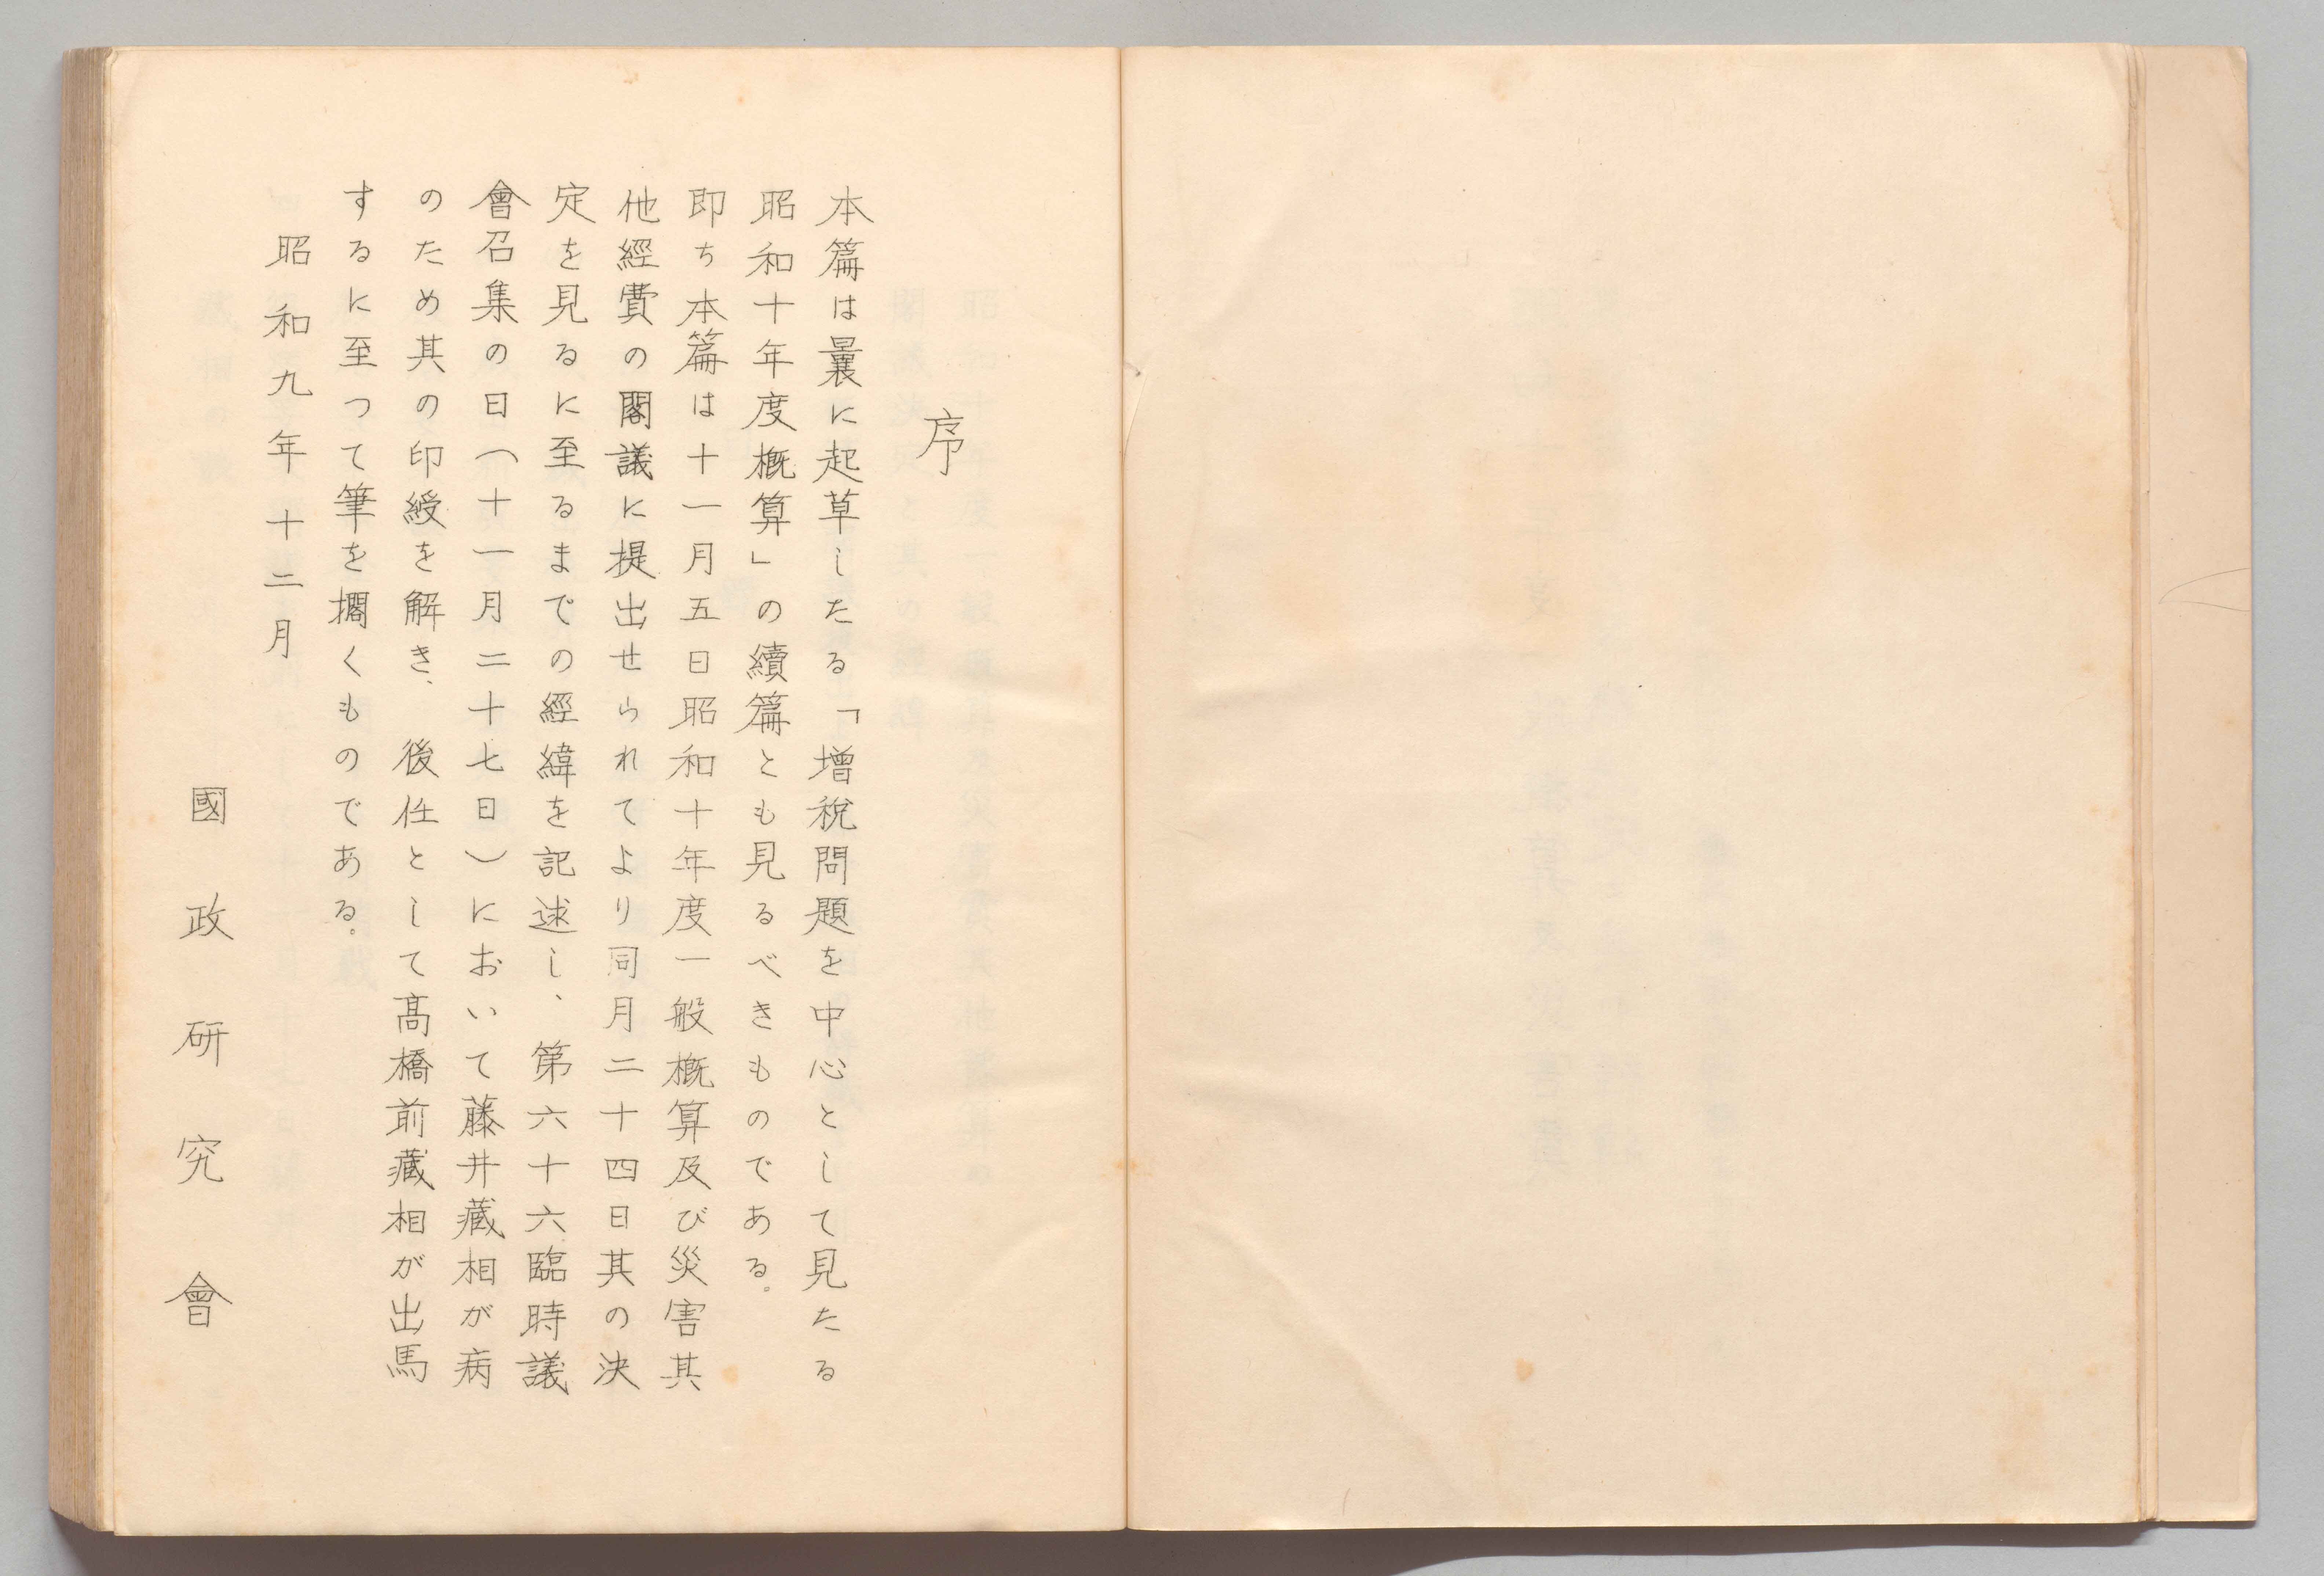 序
本篇は曩に起草したる「増税問題を中心として見たる
昭和十年度概算」の續篇とも見るべきものである。
即ち本篇は十一月五日昭和十年度一般概算及び災害其
他經費の閣議に提出せられてより同月二十四日其の決
定を見るに至るまでの經緯を記述し、第六十六臨時議
會召集の日（十一月二十七日）において藤井藏相が病
のため其の印綬を解き、後任として髙橋前藏相が出馬
するに至つて筆を擱くものである。
昭和九年十二月
國政研究會